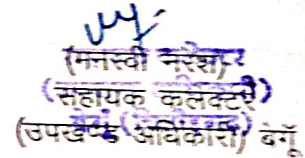 (मनस्वी नरेश)
(सहायक कलेक्टर)
(उपखण्ड अधिकारी) बेगूँ